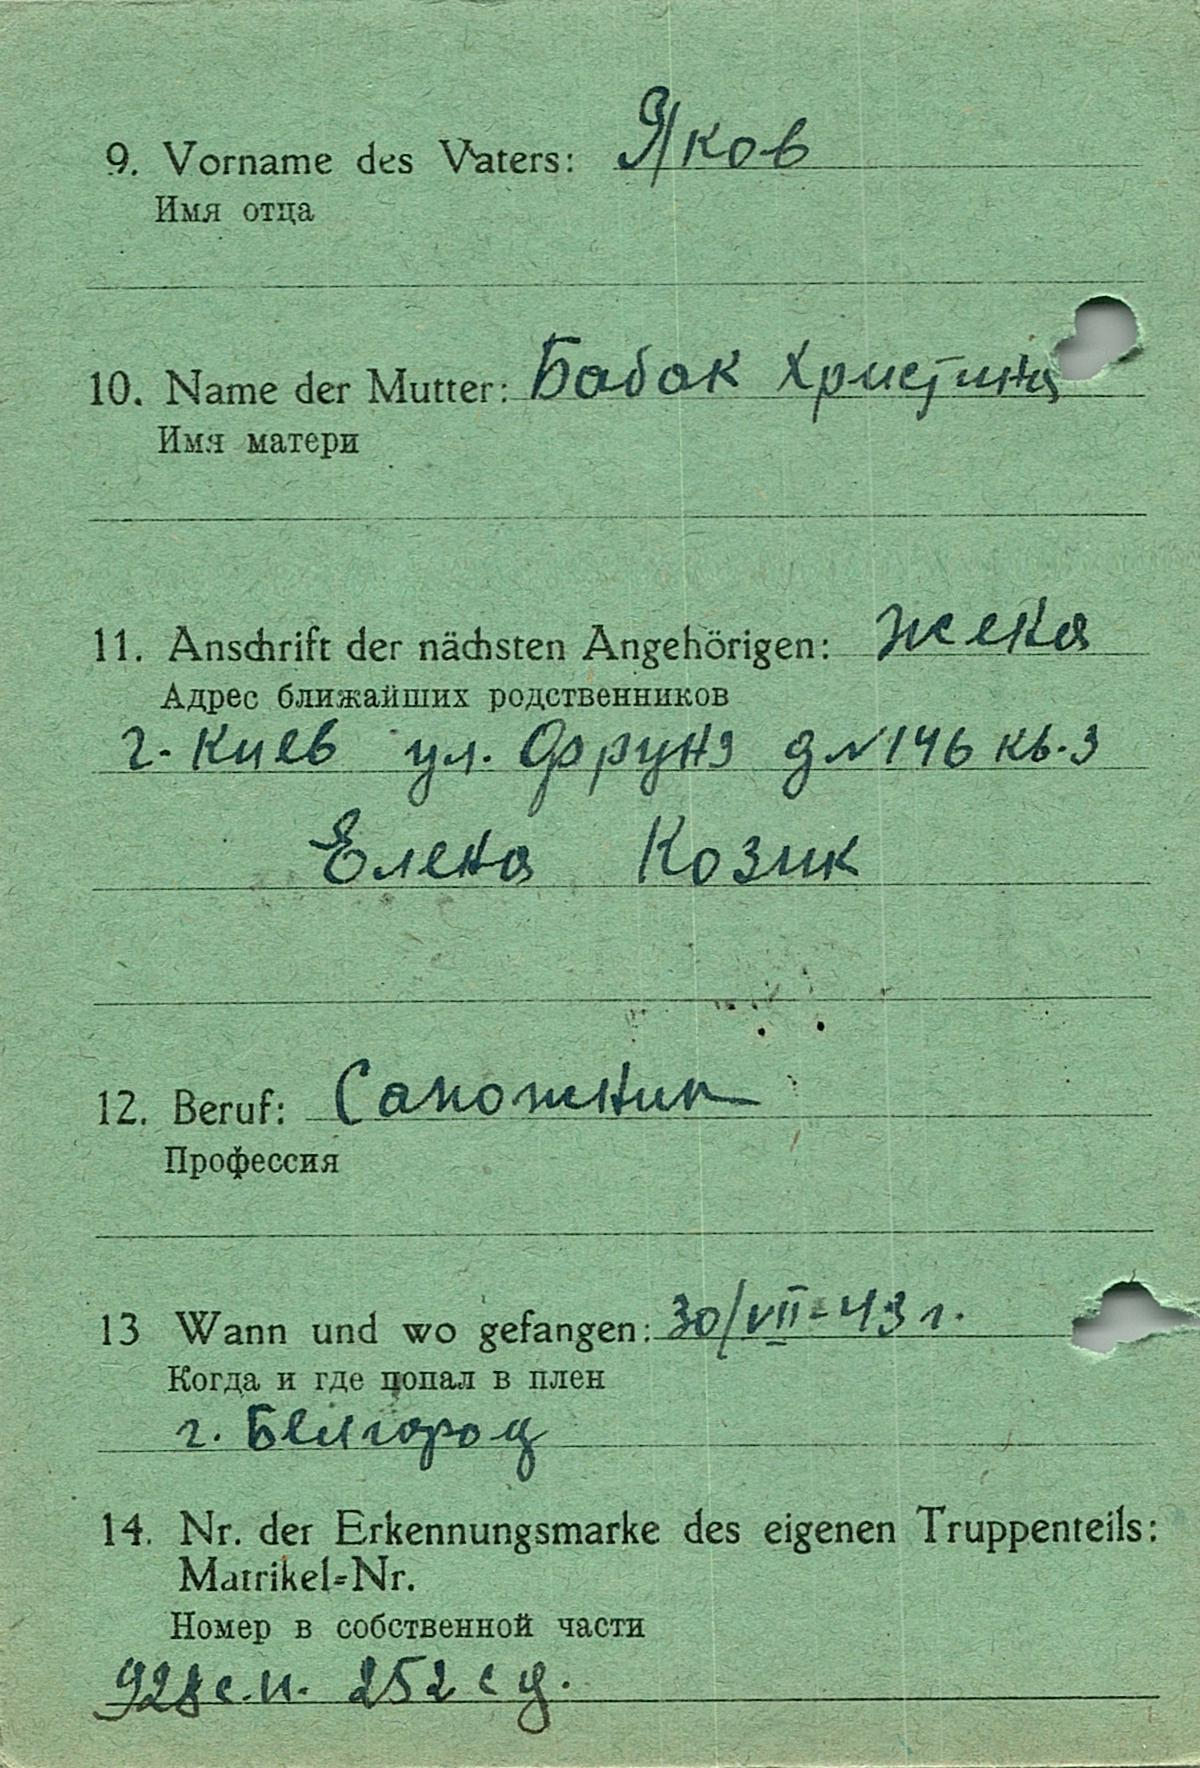 9. Vorname des Vaters: Яков
Имя отца
10. Name der Mutter: Бабак Христина
Имя матери
11. Anschrift der nächsten Angehörigen: жена
Адрес ближайших родственников
г. Киев ул. Фрунз д № 146 кв. 3
Елена Козик
12. Beruf: Сапожник
Профессия
13 Wann und wo gefangen: 30/VII-43 г.
Когда и где попал в плен
г. Белгород
14. Nr. der Erkennungsmarke des eigenen Truppenteils:
Matrikel-Nr.
Номер в собственной части
928 с.п. 252 с д.